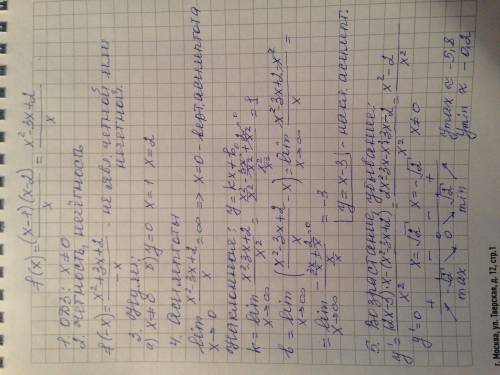 f(x) = (x-1)(x-2)/x = x²-3x+2/x
1. ОДЗ: x≠0
2. четность, нечётность
f(-x) = x²+3x+2/-x - не явл. четной или
нечетной.
3. нули:
а) x≠0 б) y=0 x=1 x=2
4. Асимптоты
lim x→0 x²-3x+2/x = ∞ => x=0 - верт. асимптота
наклонная: y=kx+b
k = lim x→∞ x²-3x+2/x² = x²/x² - 3x/x² + 2/x² / x²/x² = 1
b = lim x→∞ (x²-3x+2/x - x) = lim x→∞ x²-3x+2-x²/x =
= lim x→∞ -3x/x + 2/x / x/x = -3
y=x-3 - накл. асимпт.
5. Возрастание, убывание:
y' = (2x-3)·x-(x²-3x+2)/x² = 2x²-3x-x²+3x-2/x² = x²-2/x²
y'=0 x=√2 x=-√2 x≠0
+ - - +
-√2 0 √2
max min
ymax ≈ -5,8
ymin ≈ -0,2
г. Москва, ул. Тверская, д. 12, стр.1